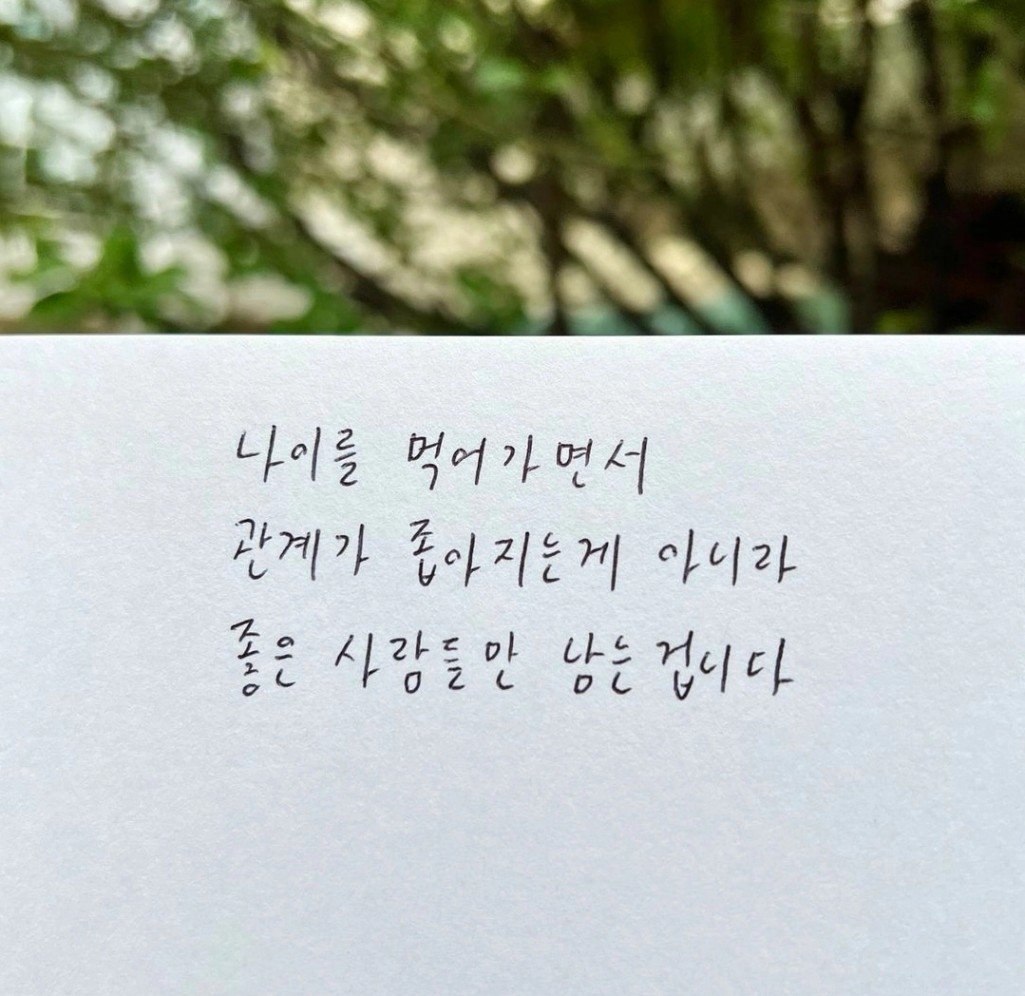 나이를 먹어가면서
관계가 좁아지는게 아니라
좋은 사람들만 남는겁니다